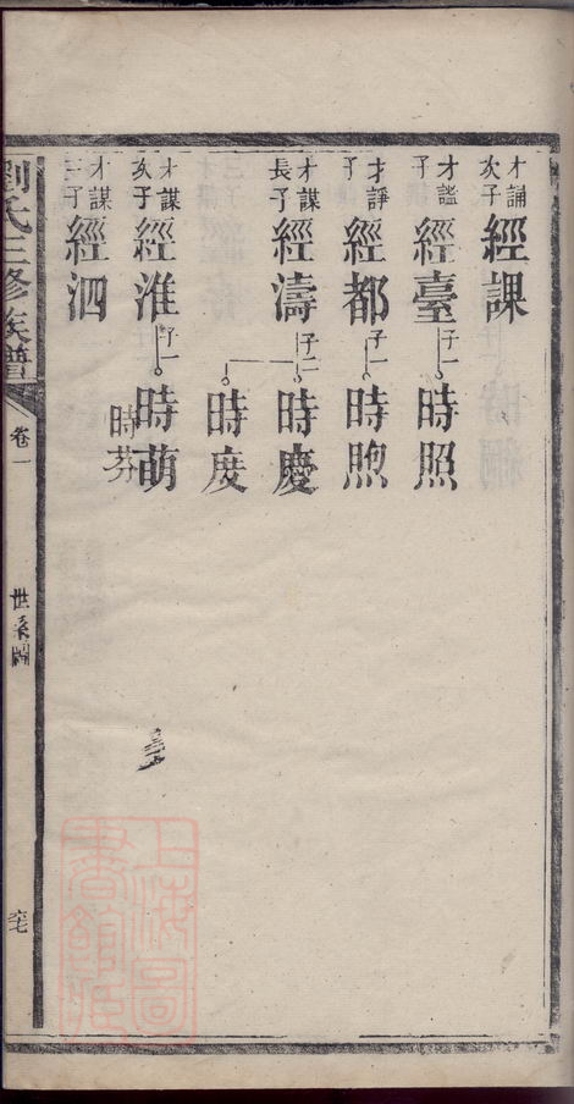 才誦次子經課
才謐子經臺子一時照
才諍子經都子一時煦
才謀長子經濤子二時慶
時度
才謀次子經淮子一時萌
時芬
才謀三子經泗
劉氏三修族譜
卷一
世系圖
上海圖書館藏